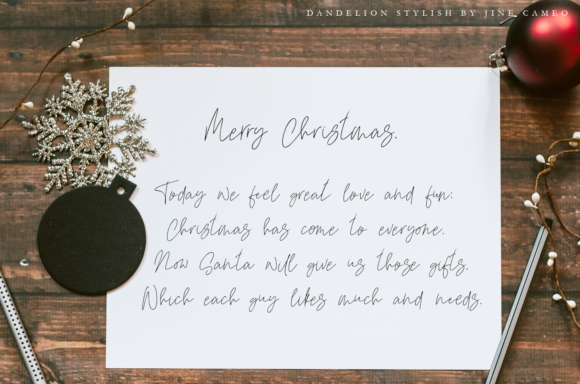 DANDELION STYLISH BY JINE CAMEO
Merry Christmas.
Today we feel great love and fun:
Christmas has come to everyone.
Now Santa will give us those gifts.
Which each guy likes much and needs.